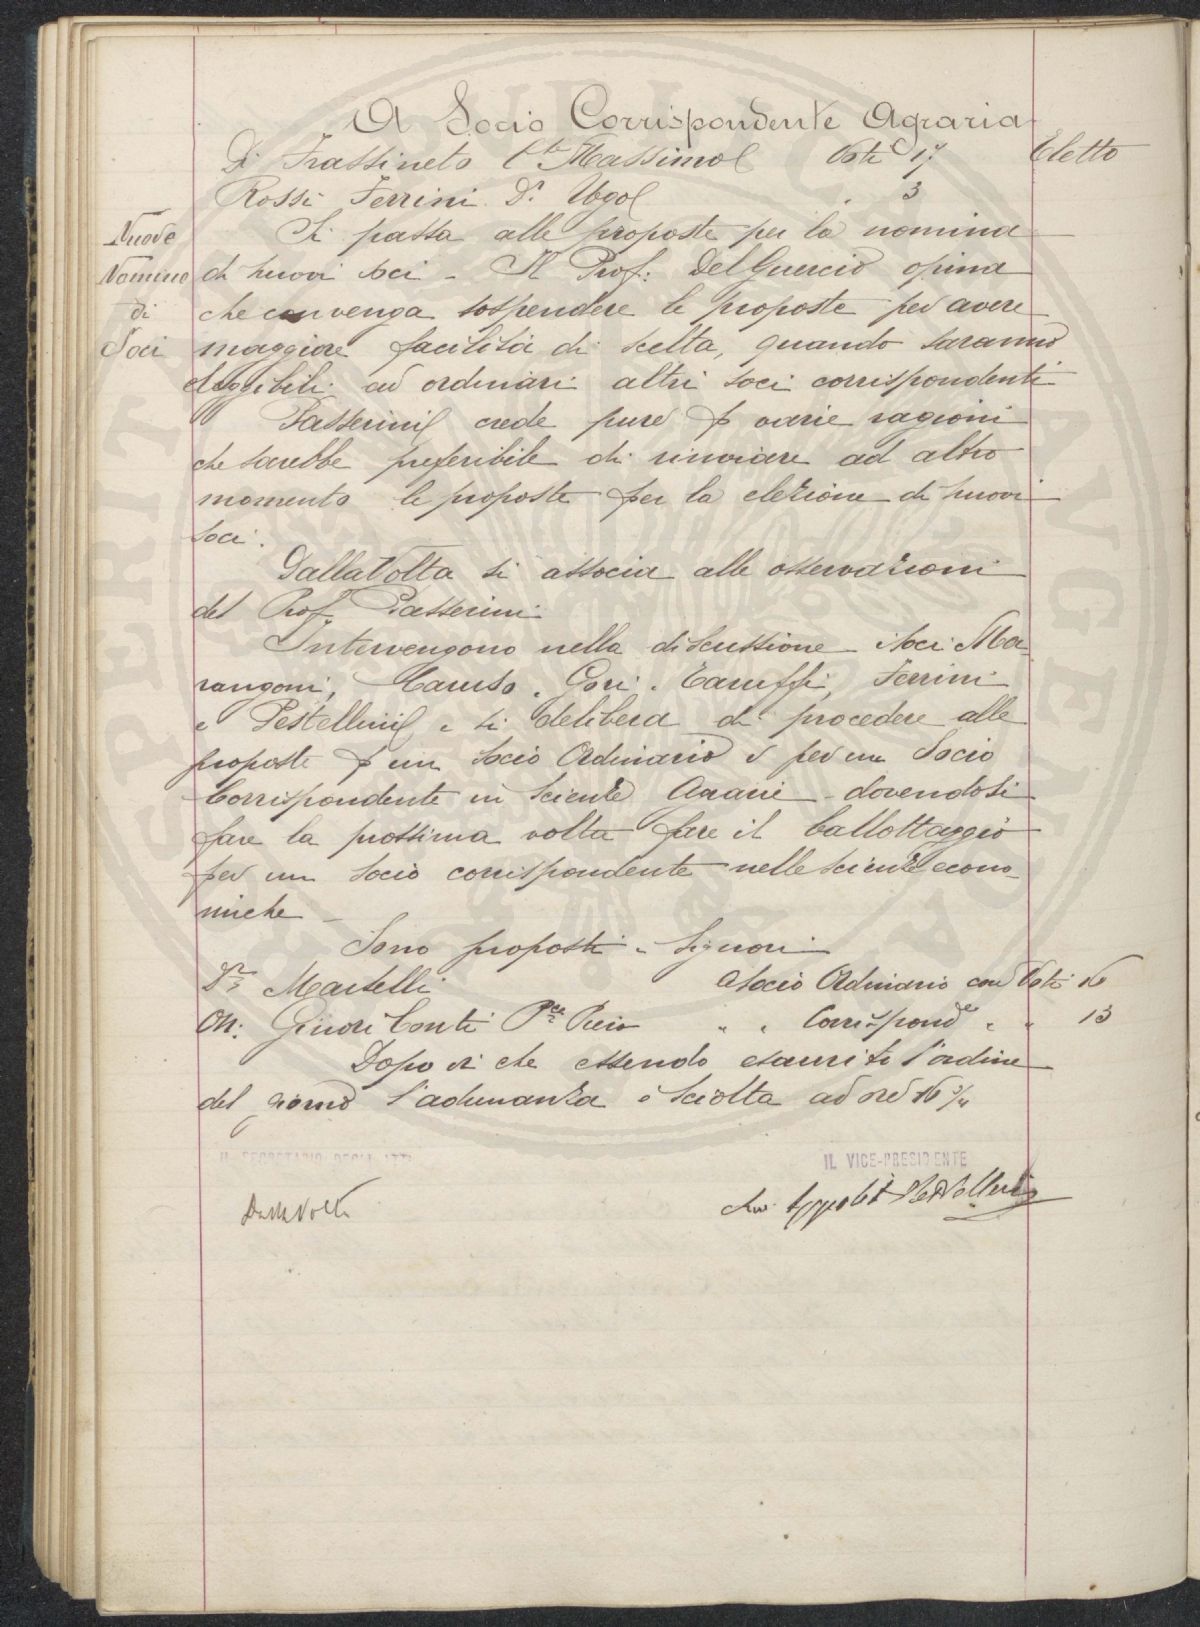 A Socio Corrispondente Agraria
Di Frassineto Cte Massimo Voti 17 Eletto
Rossi Ferrini Dr Ugo " 3
Nuove
Nomine
di
Soci
Si passa alle proposte per la nomina
di nuovi soci - Il Prof. Del Guercio opina
che convenga sospendere le proposte per avere
maggiore facilità di scelta, quando saranno
eleggibili ad ordinari altri soci corrispondenti
Passerini crede pure p varie ragioni
che sarebbe preferibile di rinviare ad altro
momento le proposte per la elezione di nuovi
soci.
Dalla Volta si associa alle osservazioni
del Prof. Passerini
Intervengono nella discussione i soci Ma-
rangoni, Caruso, Gori, Taruffi, Ferrini
e Pestellini e si delibera di procedere alle
proposte p un socio Ordinario e per un Socio
Corrispondente in Scienze Agrarie dovendosi
fare la prossima volta fare il ballottaggio
per un socio corrispondente nelle scienze econo-
miche -
Sono proposti i Signori
Dr Martelli a Socio Ordinario con Voti 16
On: Ginori Conti Pce Piero " " Corrispondte " " 13
Dopo di che essendo esaurito l'ordine
del giorno l'adunanza è sciolta ad ore 16 3/4
IL SEGRETARIO DEGLI ATTI
IL VICE-PRESIDENTE
Dalla Volta
Avv. Ippolito Pestellini